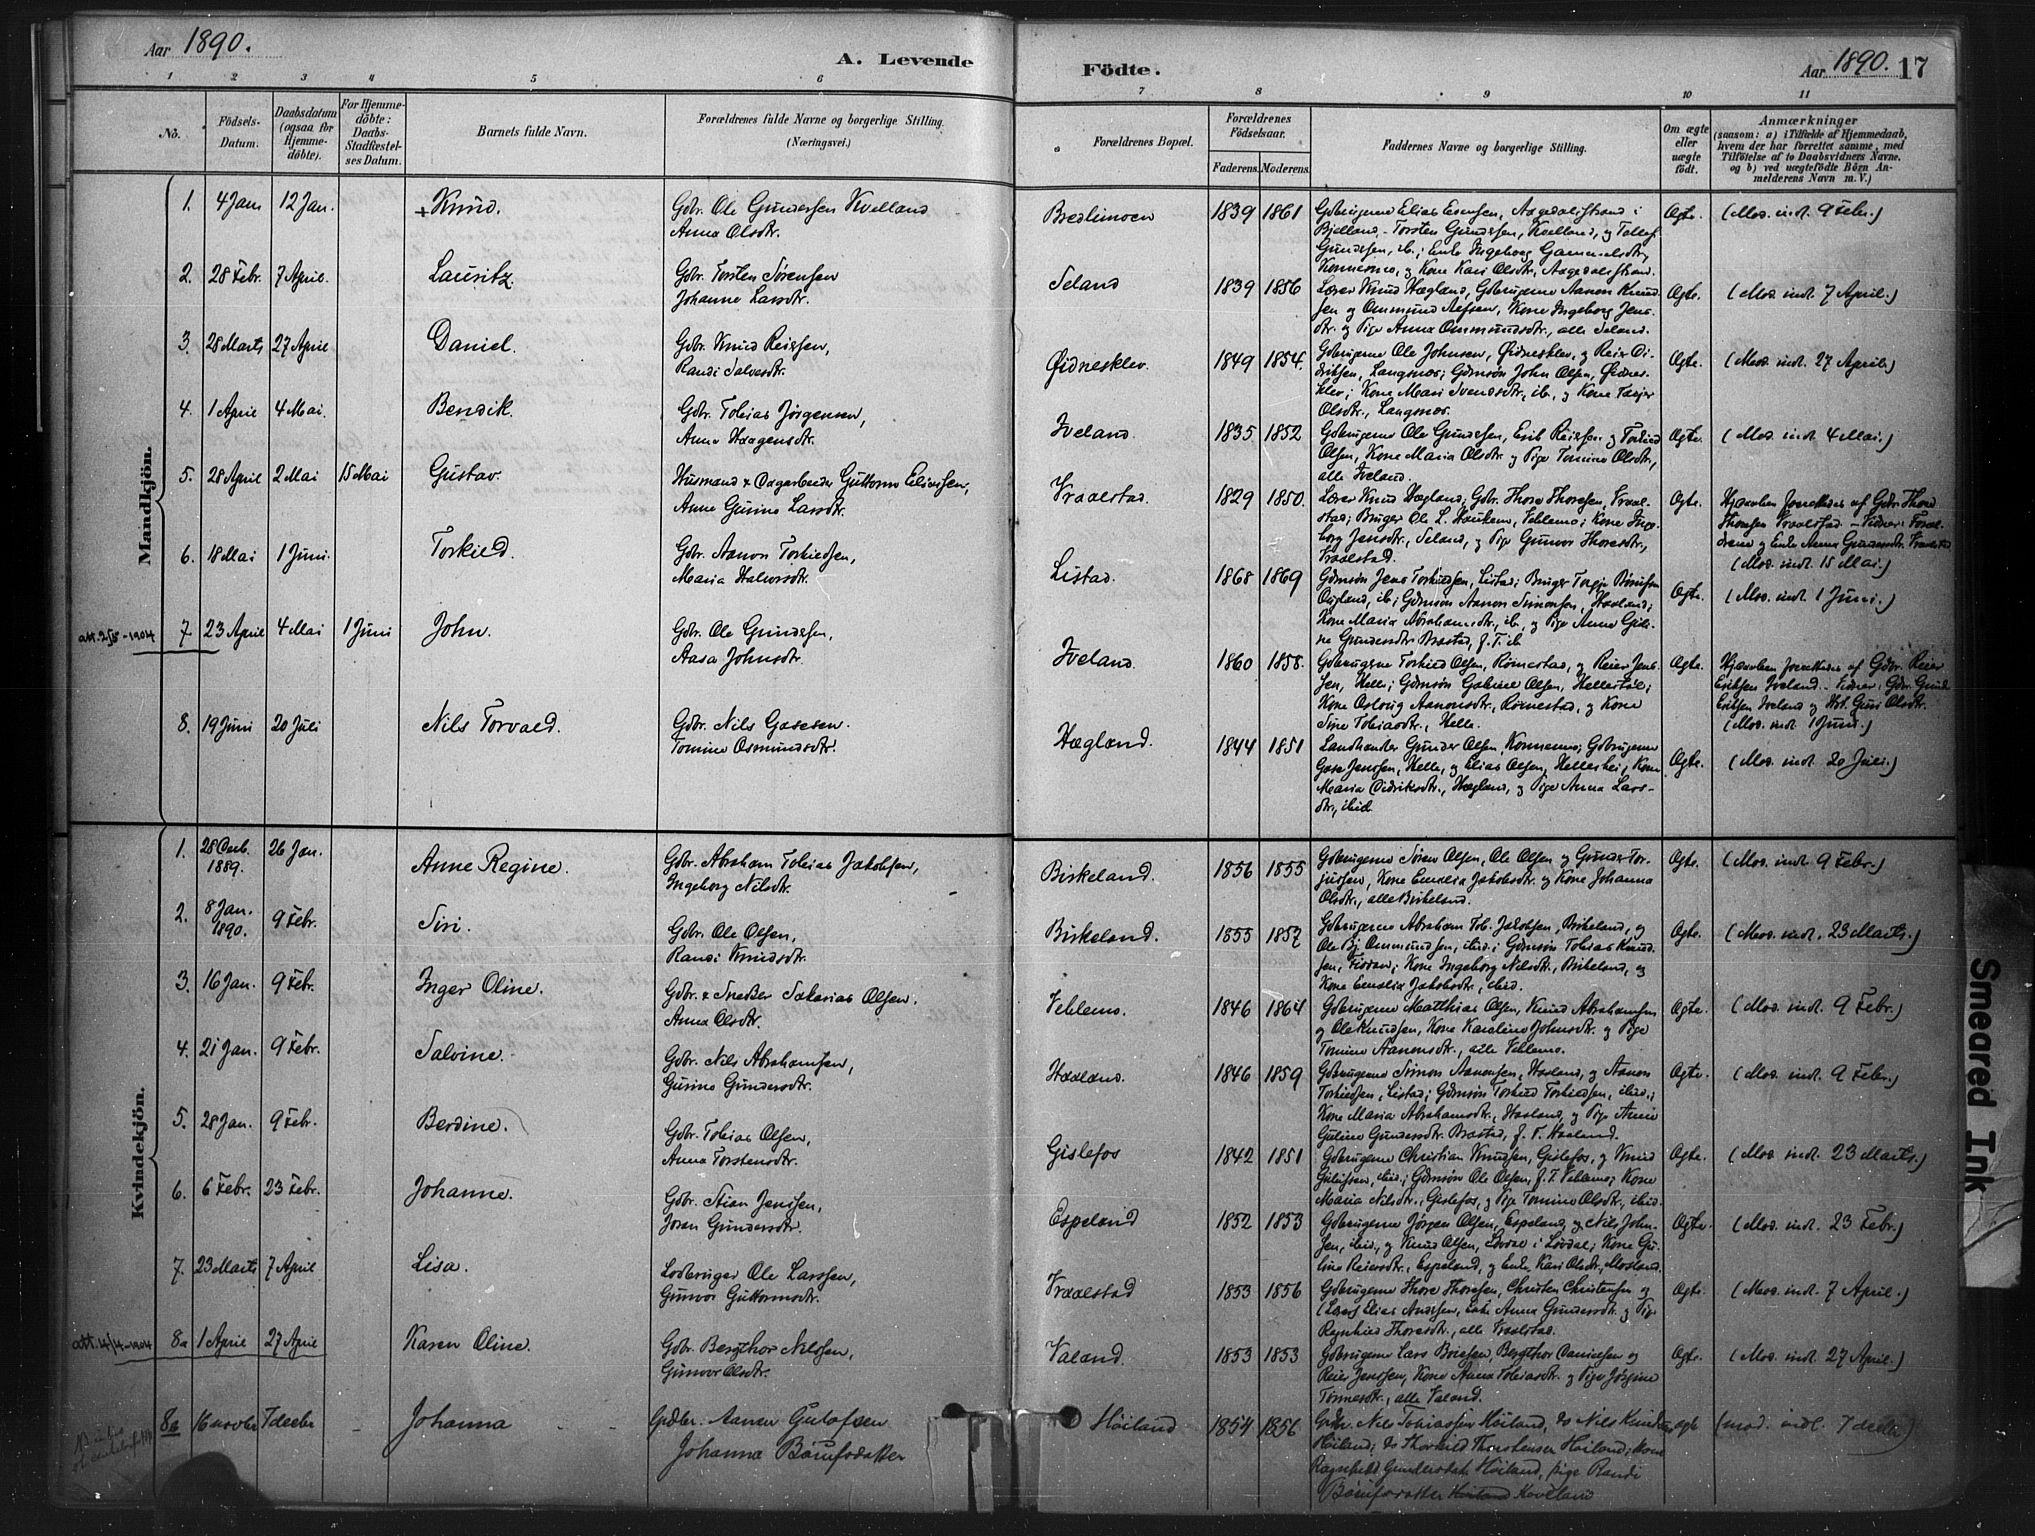 Aar 1890.
A. Levende
Födte.
Aar 1890. 17
1 2 3 4 5 6 7 8 9 10 11
No.
Födsels-
Datum.
Daabsdatum
(ogsaa for
Hjemme-
döbte).
For Hjemme-
döbte:
Daabs-
Stadfæstel-
ses Datum.
Barnets fulde Navn.
Forældrenes fulde Navne og borgerlige Stilling.
(Næringsvei.)
Forældrenes Bopæl.
Forældrenes
Födselsaar.
Faderens. Moderens.
Faddernes Navne og borgerlige Stilling.
Om ægte
eller
uægte
födt.
Anmærkninger
(saasom: a) i Tilfælde af Hjemmedaab,
hvem der har forrettet samme, med
Tilföielse af to Daabsvidners Navne,
og b) ved uægtefödte Börn An-
melderens Navn m. V.)
Mandkjön.
1. 4 Jan 12 Jan. + Knud. Gdbr. Ole Gundersen Kvelland
Anna Olsdtr. Bredlimoen 1839 1861
Bjelland, Torsten Gundersen, Kvelland, og Tollef
Ægte. (Mod. indl. 9 Febr.)
2. 28 Febr. 7 April. Lauritz. Gdbr. Torsten Sørensen
Johanne Larsdtr. Seland 1839 1856 Lærer Knud Hægland, Gdbrugerne Aanon Knud-
sen og Ommund Aessen, Kone Ingeborg Jens-
dtr. og Pige Anna Ommundsdtr., alle Seland.
Ægte. (Mod. indl. 7 April.)
3. 28 Marts 27 April Daniel. Gdbr. Knud Reiersen,
Randi Salvesdtr. Øidnesklev. 1849 1854. Gdbrugerne Ole Johnsen, Øidnesklev, og Reier Di-
driksen, Langenes; Gdmsøn John Olsen, Øidnes-
klev; Kone Mari Svendsdtr., ib., og Kone
Olsdtr., Langenes.
Ægte. (Mod. indl. 27 April.)
4. 1 April 4 Mai. Bendik. Gdbr. Tobias Jørgensen,
Anna Haagensdtr. Iveland. 1835 1852 Gdbrugerne Ole Gundersen, Erik Reiersen og Torkild
Olsen, Kone Maria Olsdtr. og Pige Tomine Olsdtr.,
alle Iveland.
Ægte. (Mod. indl. 4 Mai.)
5. 28 April 2 Mai 15 Mai Gustav. Husmand & Dagarbeider Guttorm Eilivsen,
Anne Gurine Larsdtr. Vraalstad. 1829 1850. Lærer Knud Hægland; Gdbr. Thore Thorsen, Vraal-
stad; Bruger Ole L. Haukom, Vehlemo; Kone Inge-
borg Jensdtr., Seland, og Pige Gunvor Thoresdtr.,
Vraalstad.
Ægte. Hjædaaben forrettedes af Gdbr. Thore
Thorsen Vraalstad. - Vidner: Foræl-
drene og Enke Anna Gundersdtr. Vraalstad.
(Mod. indl. 15 Mai.)
6. 18 Mai 1 Juni. Torkild. Gdbr. Aanon Torkildsen,
Maria Halvorsdtr. Listad. 1868 1869 Gdmsøn Jens Torkildsen, Listad; Bruger
ib.; Gdmsøn Aanon Simonsen, Haaland;
Kone Maria Abrahamsdtr., ib., og Pige Anne Guli-
ne Gundersdtr. Brastad, f. T. ib.
Ægte. (Mod. indl. 1 Juni.)
att. 2/5-1904 7. 23 April 4 Mai 1 Juni John. Gdbr. Ole Gundersen,
Aasa Johnsdtr. Iveland. 1860 1858. Gdbrugerne Torkild Olsen, Rømestad, og Reier Jens-
sen, Helle; Gdmsøn Gabriel Olsen,
Kone Oslaug Aanonsdtr., Rømestad, og Kone
Sine Tobiasdtr., Helle.
Ægte. Hjædaaben forrettedes af Gdbr. Reier
Eriksen Iveland. - Vidner: Gdbr. Gund.
Eriksen Iveland og Hst. Guri Olsdtr.
(Mod. indl. 1 Juni.)
8. 19 Juni 20 Juli Nils Torvald. Gdbr. Nils Gasesen.
Tomine Osmundsdtr. Hægland. 1844 1851 Landhandler Gunder Olsen, Konnesmo; Gdbrugerne
Gase Jenssen, Helle, og Elias Olsen, Hellerhei, Kone
Maria Didriksdtr., Hægland, og Pige Anna Lars-
dtr., ibid.
Ægte. (Mod. indl. 20 Juli.)
Kvindekjön.
1. 28 Decb. 1889. 26 Jan. Anne Regine. Gdbr. Abraham Tobias Jakobsen,
Ingeborg Nilsdtr. Birkeland. 1856 1855 Gdbrugerne Søren Olsen, Ole Olsen og Gunder Tor-
jussen, Kone Emelia Jakobsdtr. og Kone Johanna
Olsdtr., alle Birkeland.
Ægte. (Mod. indl. 9 Febr.)
2. 8 Jan. 1890. 9 Febr. Siri. Gdbr. Ole Olsen,
Randi Knudsdtr. Birkeland. 1855 1857 Gdbrugerne Abraham Tob. Jakobsen, Birkeland, og
Ole Bj. Ommundsen, ibid.; Gdmsøn Tobias Knud-
sen, Fisdan; Kone Ingeborg Nilsdtr., Birkeland, og
Kone Emelia Jakobsdtr., ibid.
Ægte. (Mod. indl. 23 Marts.)
3. 16 Jan. 9 Febr. Inger Oline. Gdbr. & Snedker Sakarias Olsen.
Anna Olsdtr. Vehlemo. 1846 1864 Gdbrugerne Matthias Olsen, Knud Abrahamsen
og Ole Knudsen, Kone Karoline Johnsdtr. og Pige
Tomine Aanonsdtr., alle Vehlemo.
Ægte. (Mod. indl. 9 Febr.)
4. 21 Jan. 9 Febr. Salvine. Gdbr. Nils Abrahamsen,
Gurine Gundersdtr. Haaland. 1846 1859 Gdbrugerne Simon Aanonsen, Haaland, og Aanon
Torkildsen, Listad; Gdmsøn Torkild Torkildsen, ibid.;
Kone Maria Abrahamsdtr., Haaland, og Pige Anne
Guline Gundersdtr. Brastad, f. T. Haaland.
Ægte. (Mod. indl. 9 Febr.)
5. 28 Jan. 9 Febr. Berdine. Gdbr. Tobias Olsen,
Anna Torstensdtr. Gislefos 1842 1851 Gdbrugerne Christian Knudsen, Gislefos, og Knud
ibid.; Gdmsøn Ole Olsen, f. T. Vehlemo; Kone
Maria Nilsdtr., Gislefos, og Pige Tomine Olsdtr., ibid.
Ægte. (Mod. indl. 23 Marts.)
6. 6 Febr. 23 Febr. Johanne. Gdbr. Stian Jenssen,
Joran Gundersdtr. Espeland 1852 1853 Gdbrugerne Jørgen Olsen, Espeland, og Nils John-
sen, ibid., og Knud Olsen, Løvdal i Løvdal; Kone Gu-
line Reiersdtr., Espeland, og Enke Kari Olsdtr., Mosland.
Ægte. (Mod. indl. 23 Febr.)
7. 23 Marts 7 April Lisa. Lodbruger Ole Larssen,
Gunvor Guttormsdtr. Vraalstad 1853 1856 Gdbrugerne Thore Thorsen, Christen Christensen og
Elias Andersen, Enke Anna Gundersdtr. og Pige
Ragnhild Thoresdtr., alle Vraalstad.
Ægte. (Mod. indl. 7 April.)
att. 14/4-1904 8a 1 April 27 April Karen Oline. Gdbr. Bergthor Nilssen,
Gunvor Olsdtr. Valand. 1853 1853 Gdbrugerne Lars Boiesen, Bergthor Danielsen og
Reier Jenssen, Kone Anna Tobiasdtr. og Pige Jørgine
Tønnesdtr., alle Valand.
Ægte. (Mod. indl. 27 April.)
8b 16 novbr 7 decbr Johanna Grdbr. Aanen Gulofsen
Johanna Börufsdatter Höiland 1854 1856 Grdbr. Nils Tobiassen Höiland, do Nils Knudsen
Höiland; do Thorkild Thorstensen Höiland; kone
Ragnhild Gundersdatr Höiland, pige Randi
Börufsdatter Höiland Koveland
ægte (mod. indl. 7 decbr)
Smeared Ink